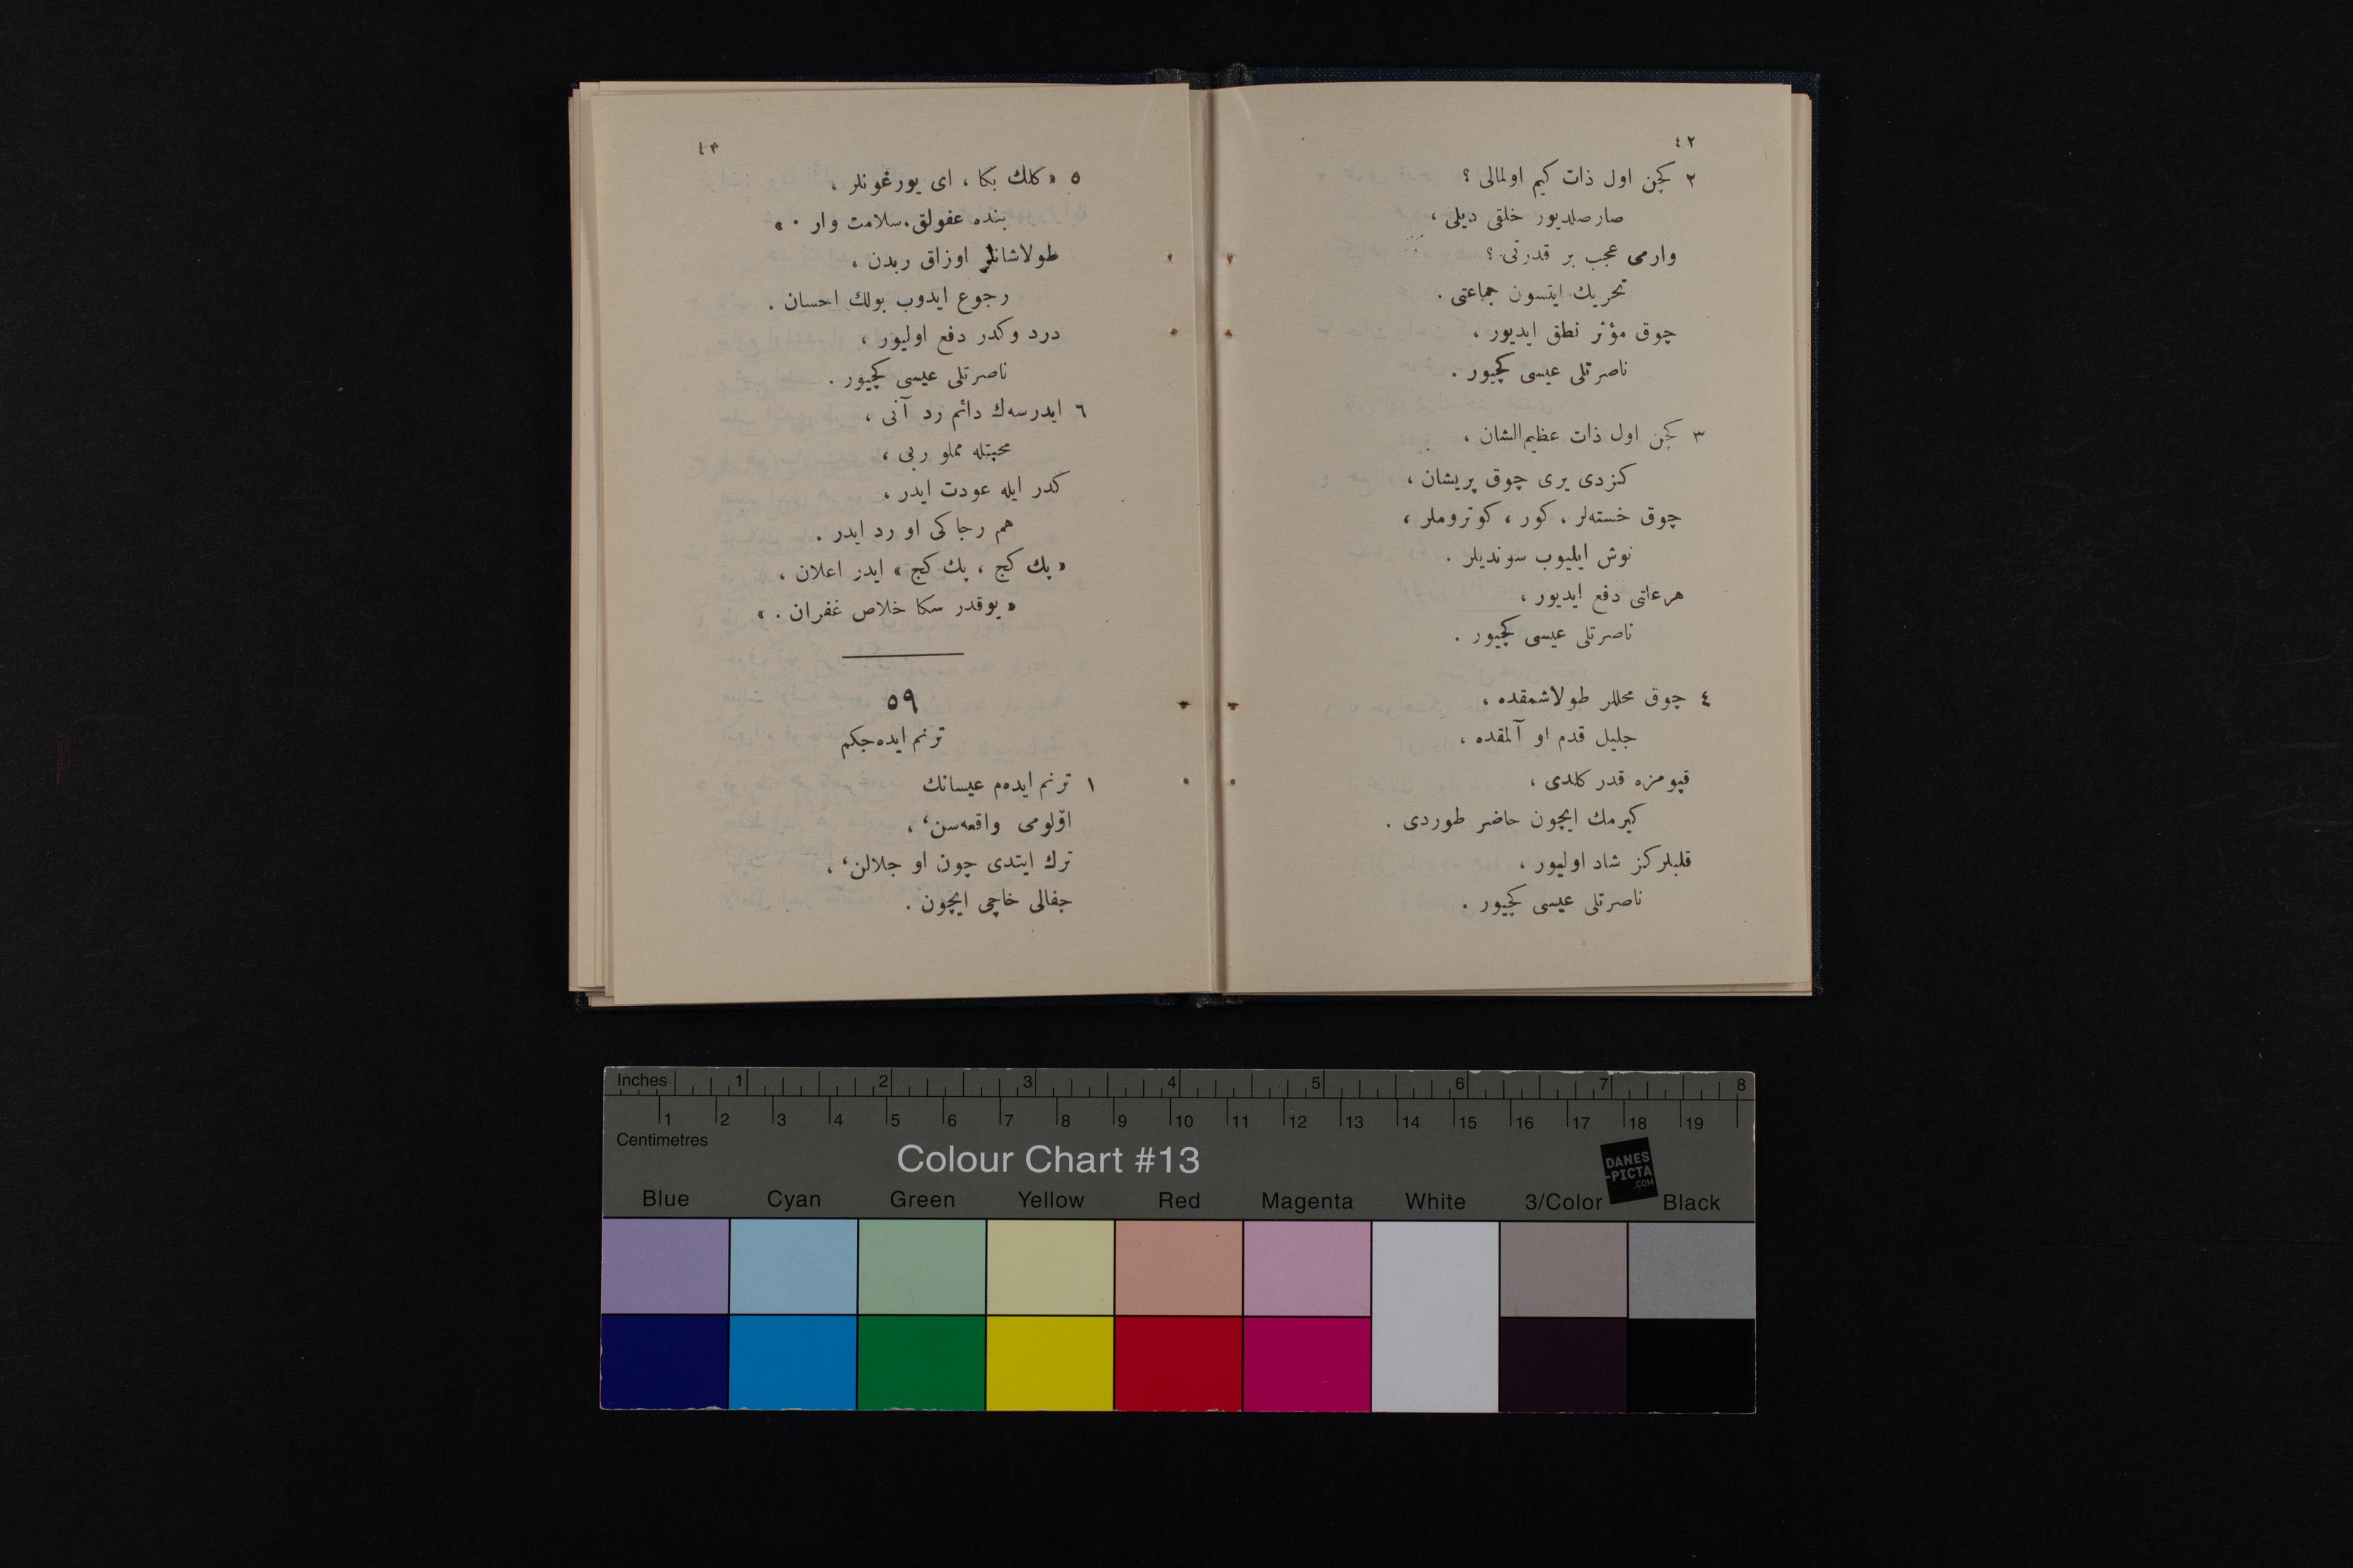 ٤٢
٢ کچن اول ذات کیم اولمالی ؟
صارصلدیور خلقی دیلی ،
وارمی عجب بر قدرتی ؟
تحریك ایتسون جماعتی .
چوق مؤثر نطق ایدیور ،
ناصرتلی عیسی کچیور .
٣ کچن اول ذات عظیم‌الشان ،
کزدی یری چوق پریشان ،
چوق خسته‌لر ، کور ، کوتروملر ،
نوش ایلیوب سوندیلر .
هرعلتی دفع ایدیور ،
ناصرتلی عیسی کچیور .
٤ چوق محللر طولاشمقده ،
جلیل قدم او آلمقده ،
قپومزه قدر کلدی ،
کیرمك ایچون حاضر طوردی .
قلبلرکز شاد اولیور ،
ناصرتلی عیسی کچیور .
٤٣
٥ « کلك بکا ، ای یورغونلر ،
بنده عفولق ، سلامت وار . »
طولاشانلر اوزاق ربدن ،
رجوع ایدوب بولك احسان .
درد وکدر دفع اولیور ،
ناصرتلی عیسی کچیور .
٦ ایدرسه‌ك دائم رد آنی ،
محبتله مملو ربی ،
کدر ایله عودت ایدر ،
هم رجاکی او رد ایدر .
« پك کج ، پك کج » ایدر اعلان ،
« یوقدر سکا خلاص غفران . »
٥٩
ترنم ایده‌جکم
١ ترنم ایده‌م عیسانك
اولومی واقعه‌سن‘ ،
ترك ایتدی چون او جلالن‘ ،
جفالی خاچی ایچون .
Inches 1 2 3 4 5 6 7 8
1 2 3 4 5 6 7 8 9 10 11 12 13 14 15 16 17 18 19
Centimetres
Colour Chart #13
DANES
-PICTA
.COM
Blue Cyan Green Yellow Red Magenta White 3/Color Black